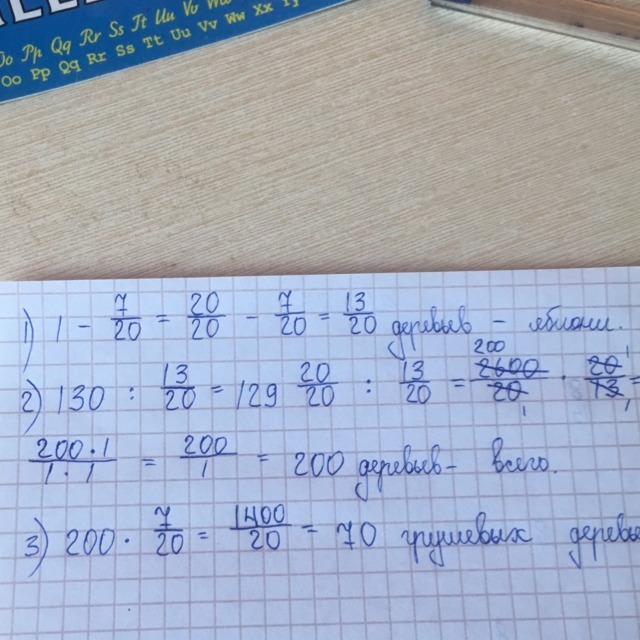 Oo Pp Qq Rr Ss Tt Uu Vv Ww
Oo Pp Qq Rr Ss Tt Uu Vv Ww Xx Yy
1) 1 - 7/20 = 20/20 - 7/20 = 13/20 деревьев - яблони.
2) 130 : 13/20 = 129 20/20 : 13/20 = 200 2600/20 1 · 20/13 1 1 =
200·1/1·1 = 200/1 = 200 деревьев - всего.
3) 200 · 7/20 = 1400/20 = 70 грушевых